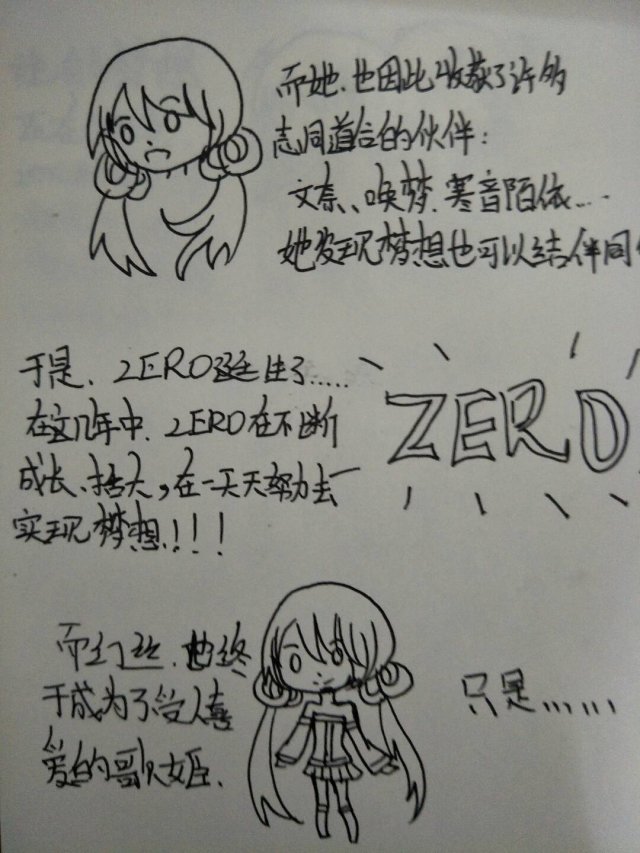 而她、也因此收获了许多
志同道合的伙伴:
文奈、唤梦、寒音陌依...
她发现梦想也可以结伴同
于是、ZERO诞生了.....
在这几年中、ZERO在不断
成长、括大,在一天天努力去
实现梦想!!!
ZERO
而幻丝、也终
于成为了受人喜
爱的歌姬、
只是......